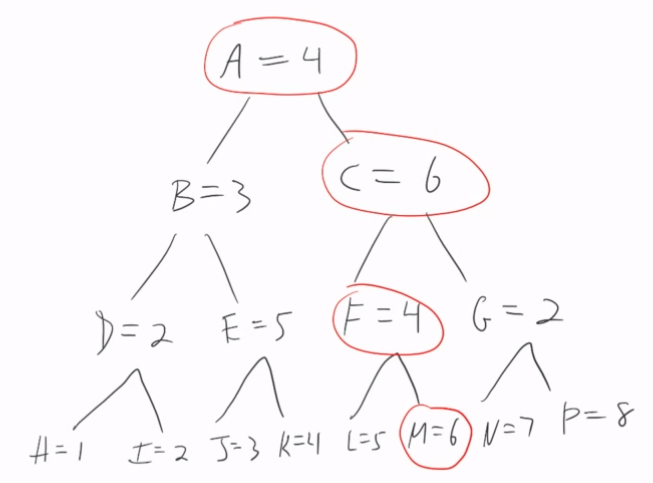 A = 4
B = 3
C = 6
D = 2
E = 5
F = 4
G = 2
H = 1
I = 2
J = 3
K = 4
L = 5
M = 6
N = 7
P = 8